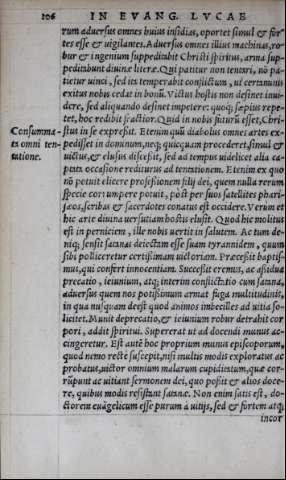 106 IN EVANG. LVCAE
rum aduersus omnes huius insidias, oportet simul & for
tes esse & uigilantes. Aduersus omnes illius machinas, ro
bur & ingenium suppeditabit Christi spiritus, arma sup-
peditabunt diuinæ literæ. Qui patitur non tentari, nō pa
tietur uinci, sed ita temperabit conflictum, ut certaminis
exitus nobis cedat in bonū. Victus hostis non desinet inui
dere, sed aliquando desinet impetere: quoq; sæpius repe-
tet, hoc redibit fractior. Quid in nobis futurū esset, Chri-
stus in se expressit. Etenim quū diabolus omnes artes ex-
pedisset in dominum, neq; quicquam procederet, simul &
uictus, & elusus discessit, sed ad tempus uidelicet alia ca-
ptata occasione rediturus ad tentationem. Etenim ex quo
nō potuit elicere professionem filij dei, quem nulla rerum
specie corrumpere potuit, post per suos satellites phari-
sæos, scribas & sacerdotes conatus est occidere. Verum et
hic arte diuina uersutiam hostis elusit. Quod hic molitus
est in perniciem, ille nobis uertit in salutem. Ac tum de-
niq; sensit satanas deiectam esse suam tyrannidem, quum
sibi polliceretur certissimam uictoriam. Præcessit baptis-
mus, qui confert innocentiam. Successit eremus, ac assidua
precatio, ieiunium, atq; interim conflictatio cum satana,
aduersus quem nos potissimum armat fuga multitudinis,
in qua nusquam deest quod animos imbecilles ad uitia so-
licitet. Munit deprecatio, & ieiunium robur detrahit cor
pori, addit spiritui. Supererat ut ad docendi munus ac-
cingeretur. Est autē hoc proprium munus episcoporum,
quod nemo rectè suscepit, nisi multis modis exploratus ac
probatus, uictor omnium malarum cupiditatum, quæ cor-
rūpunt ac uitiant sermonem dei, quo possit & alios doce-
re, quibus modis resistant satanæ. Non enim satis est, do-
ctorem euāgelicum esse purum à uitijs, sed & fortem atq;
incor
Consumma-
ta omni ten-
tatione.